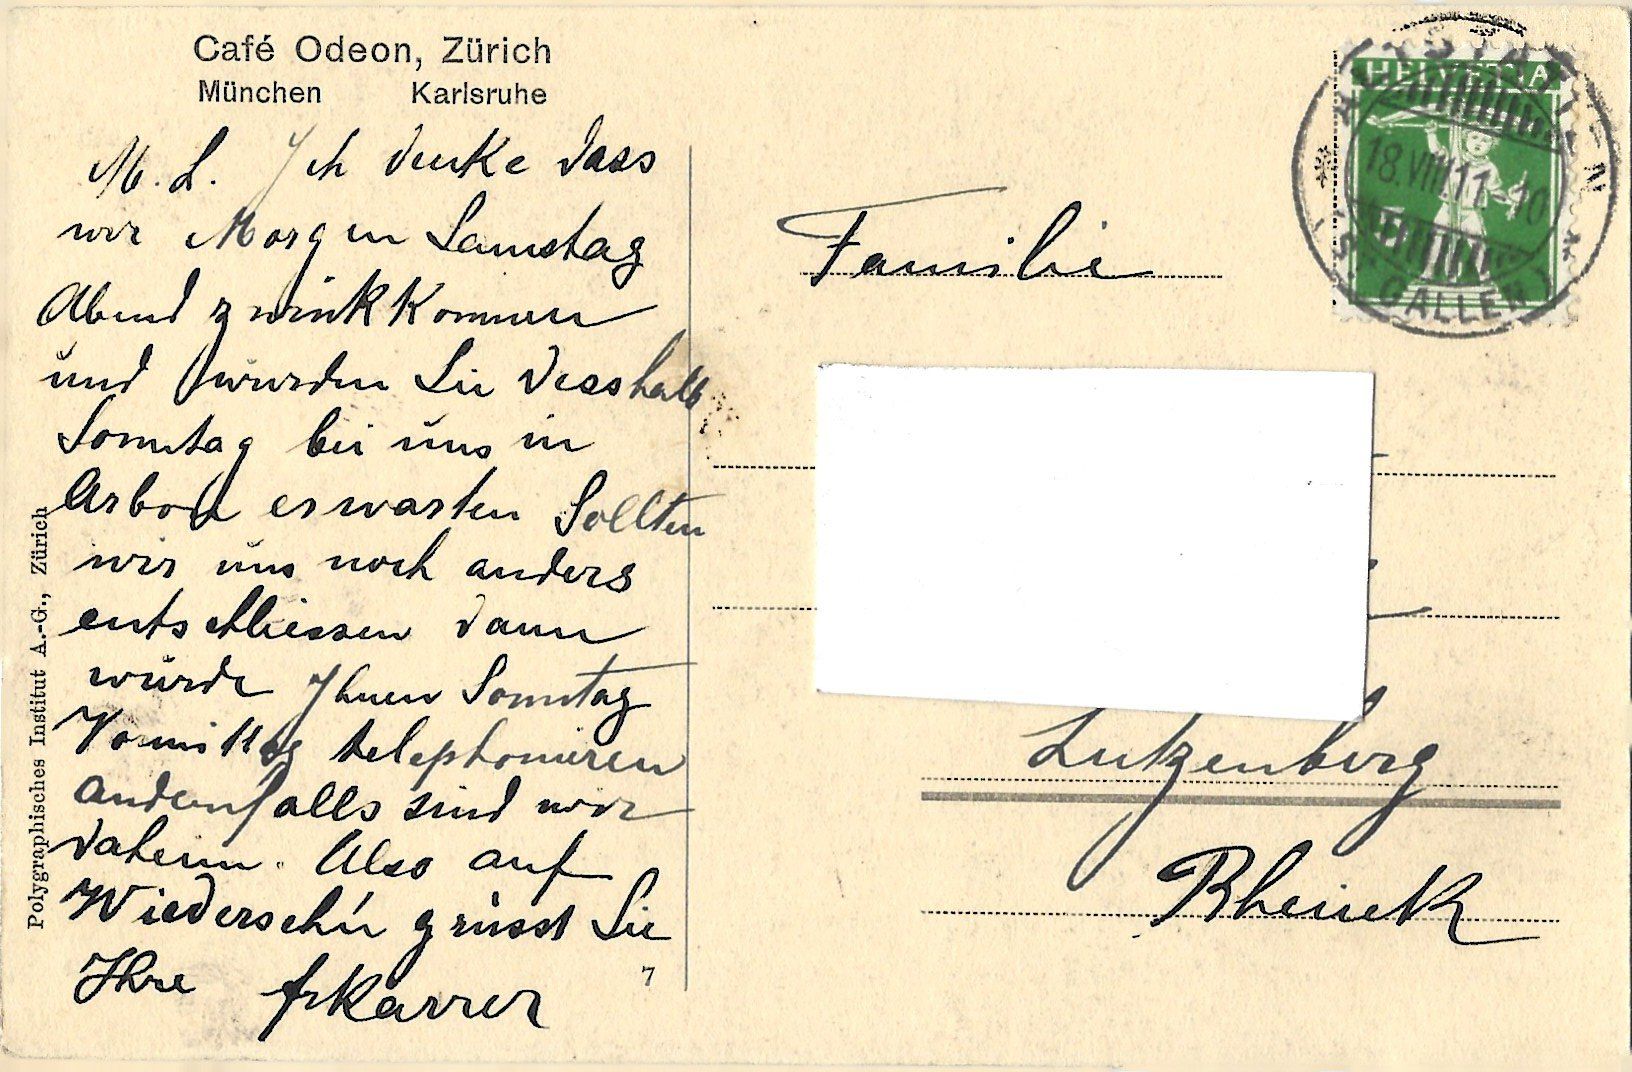 Café Odeon, Zürich
München Karlsruhe
M. L. Ich denke dass
wir Morgen Samstag
Abend zurückkommen
und würden Sie desshalb
Sonntag bei uns in
Arbon erwarten Sollten
wir uns noch anders
entschliessen dann
würde Ihnen Sonntag
Vormittag telephonieren
andernfalls sind wir
daheim. Also auf
Wiederseh'n grüsst Sie
Ihre Karrer
7
Polygraphisches Institut A.-G., Zürich
HELVETIA
18.VIII.11. 10
(ST. GALLEN)
Familie
Lutzenberg
Rheineck